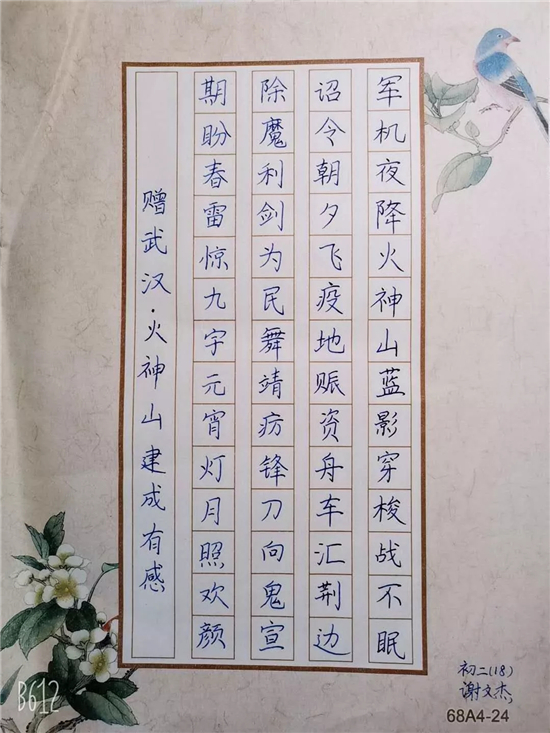 军机夜降火神山蓝影穿梭战不眠
诏令朝夕飞疫地赈资舟车汇荆边
除魔利剑为民舞靖疠锋刀向鬼宣
期盼春雷惊九字元宵灯月照欢颜
赠武汉·火神山建成有感
初二(18)
谢文杰
68A4-24
B612